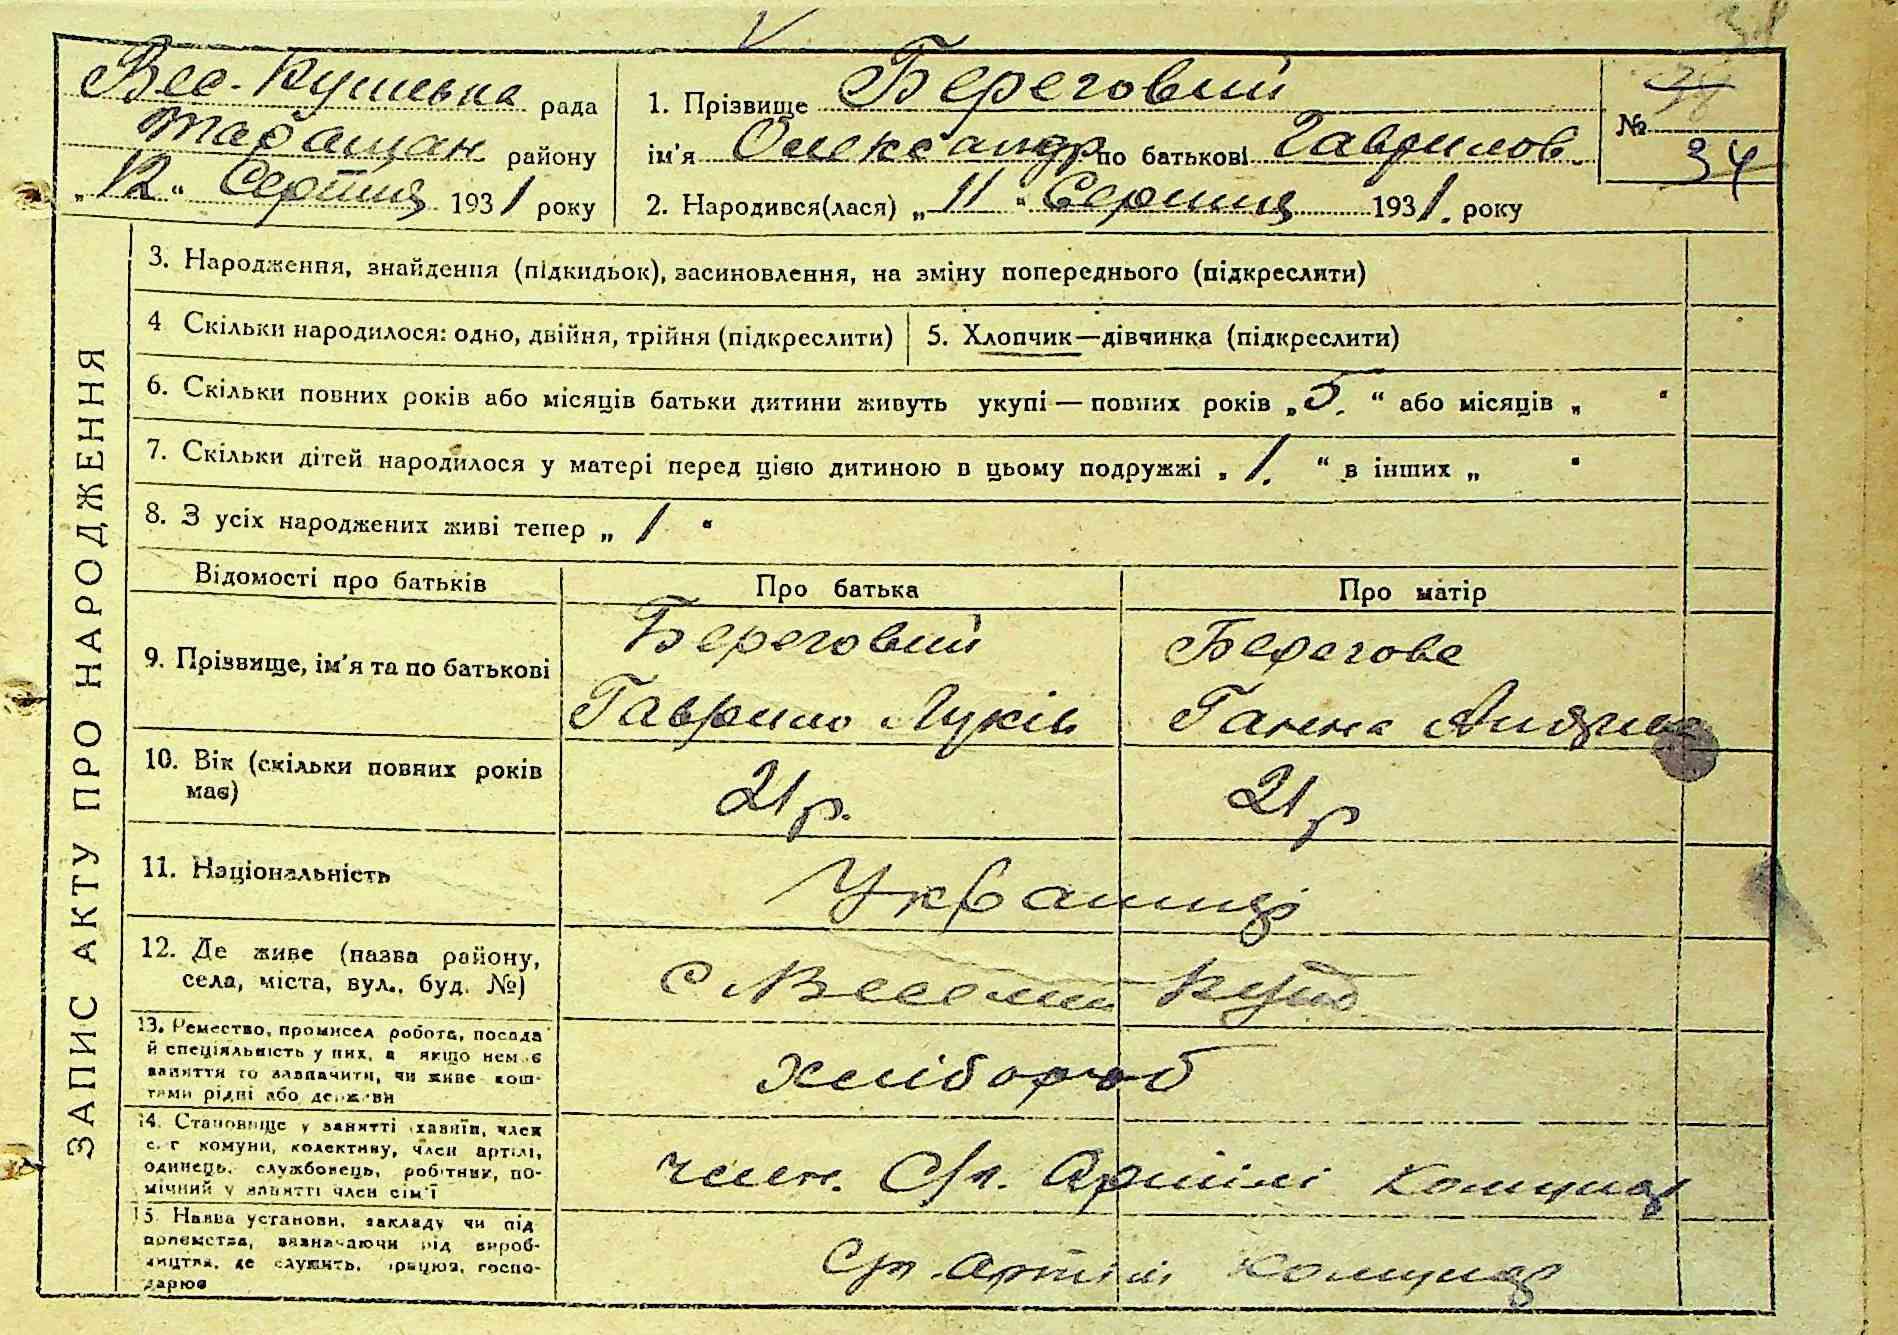 38
Вес-Кутська рада
Таращан району
„12" Серпня 1931 року
1. Прізвище Береговий
ім'я Олександр по батькові Гаврилов
2. Народився(лася) „11" Серпня 1931. року
№ 34
ЗАПИС АКТУ ПРО НАРОДЖЕННЯ
3. Народження, знайдення (підкидьок), засиновлення, на зміну попереднього (підкреслити)
4 Скільки народилося: одно, двійня, трійня (підкреслити)
5. Хлопчик—дівчинка (підкреслити)
6. Скільки повних років або місяців батьки дитини живуть укупі — повних років „5." або місяців „ "
7. Скільки дітей народилося у матері перед цією дитиною в цьому подружжі „1." в інших „ "
8. З усіх народжених живі тепер „1"
Відомості про батьків Про батька Про матір
9. Прізвище, ім'я та по батькові
Береговий
Гаврило Луків
Берегова
Ганна
10. Вік (скільки повних років
має)
21 р. 21 р
11. Національність
Українці
12. Де живе (назва району,
села, міста, вул., буд. №)
с Веселий Кут
13. Ремество, промисел робота, посада
й спеціяльність у них, а якщо нема є
заняття то зазначити, чи живе кош-
тами рідні або держави
хлібороб
14. Становище у занятті хазяїн, член
с. г комуни, колективу, член артілі,
одинець, службовець, робітник, по-
мічний у занятті член сім'ї
член. С/г. Артілі Комунар
15. Назва установи, закладу чи під
приємства, зазначаючи рід вироб-
ництва, де служить, працює, госпо-
дарює
С/г. Артіль Комунар